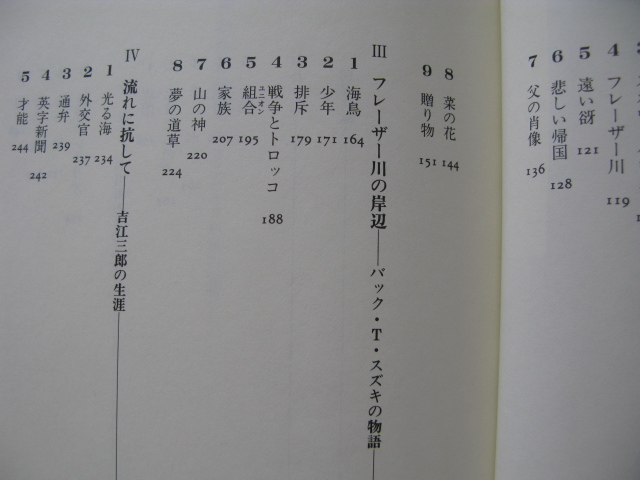 4 フレーザー川 119
5 遠い谺 121
6 悲しい帰国 128
7 父の肖像 136
8 菜の花 144
9 贈り物 151
III フレーザー川の岸辺――バック・T・スズキの物語――
1 海鳥 164
2 少年 171
3 排斥 179
4 戦争とトロッコ 188
5 組合 ユニオン 195
6 家族 207
7 山の神 220
8 夢の道草 224
IV 流れに抗して――吉江三郎の生涯――
1 光る海 234
2 外交官 237
3 通弁 239
4 英字新聞 242
5 才能 244